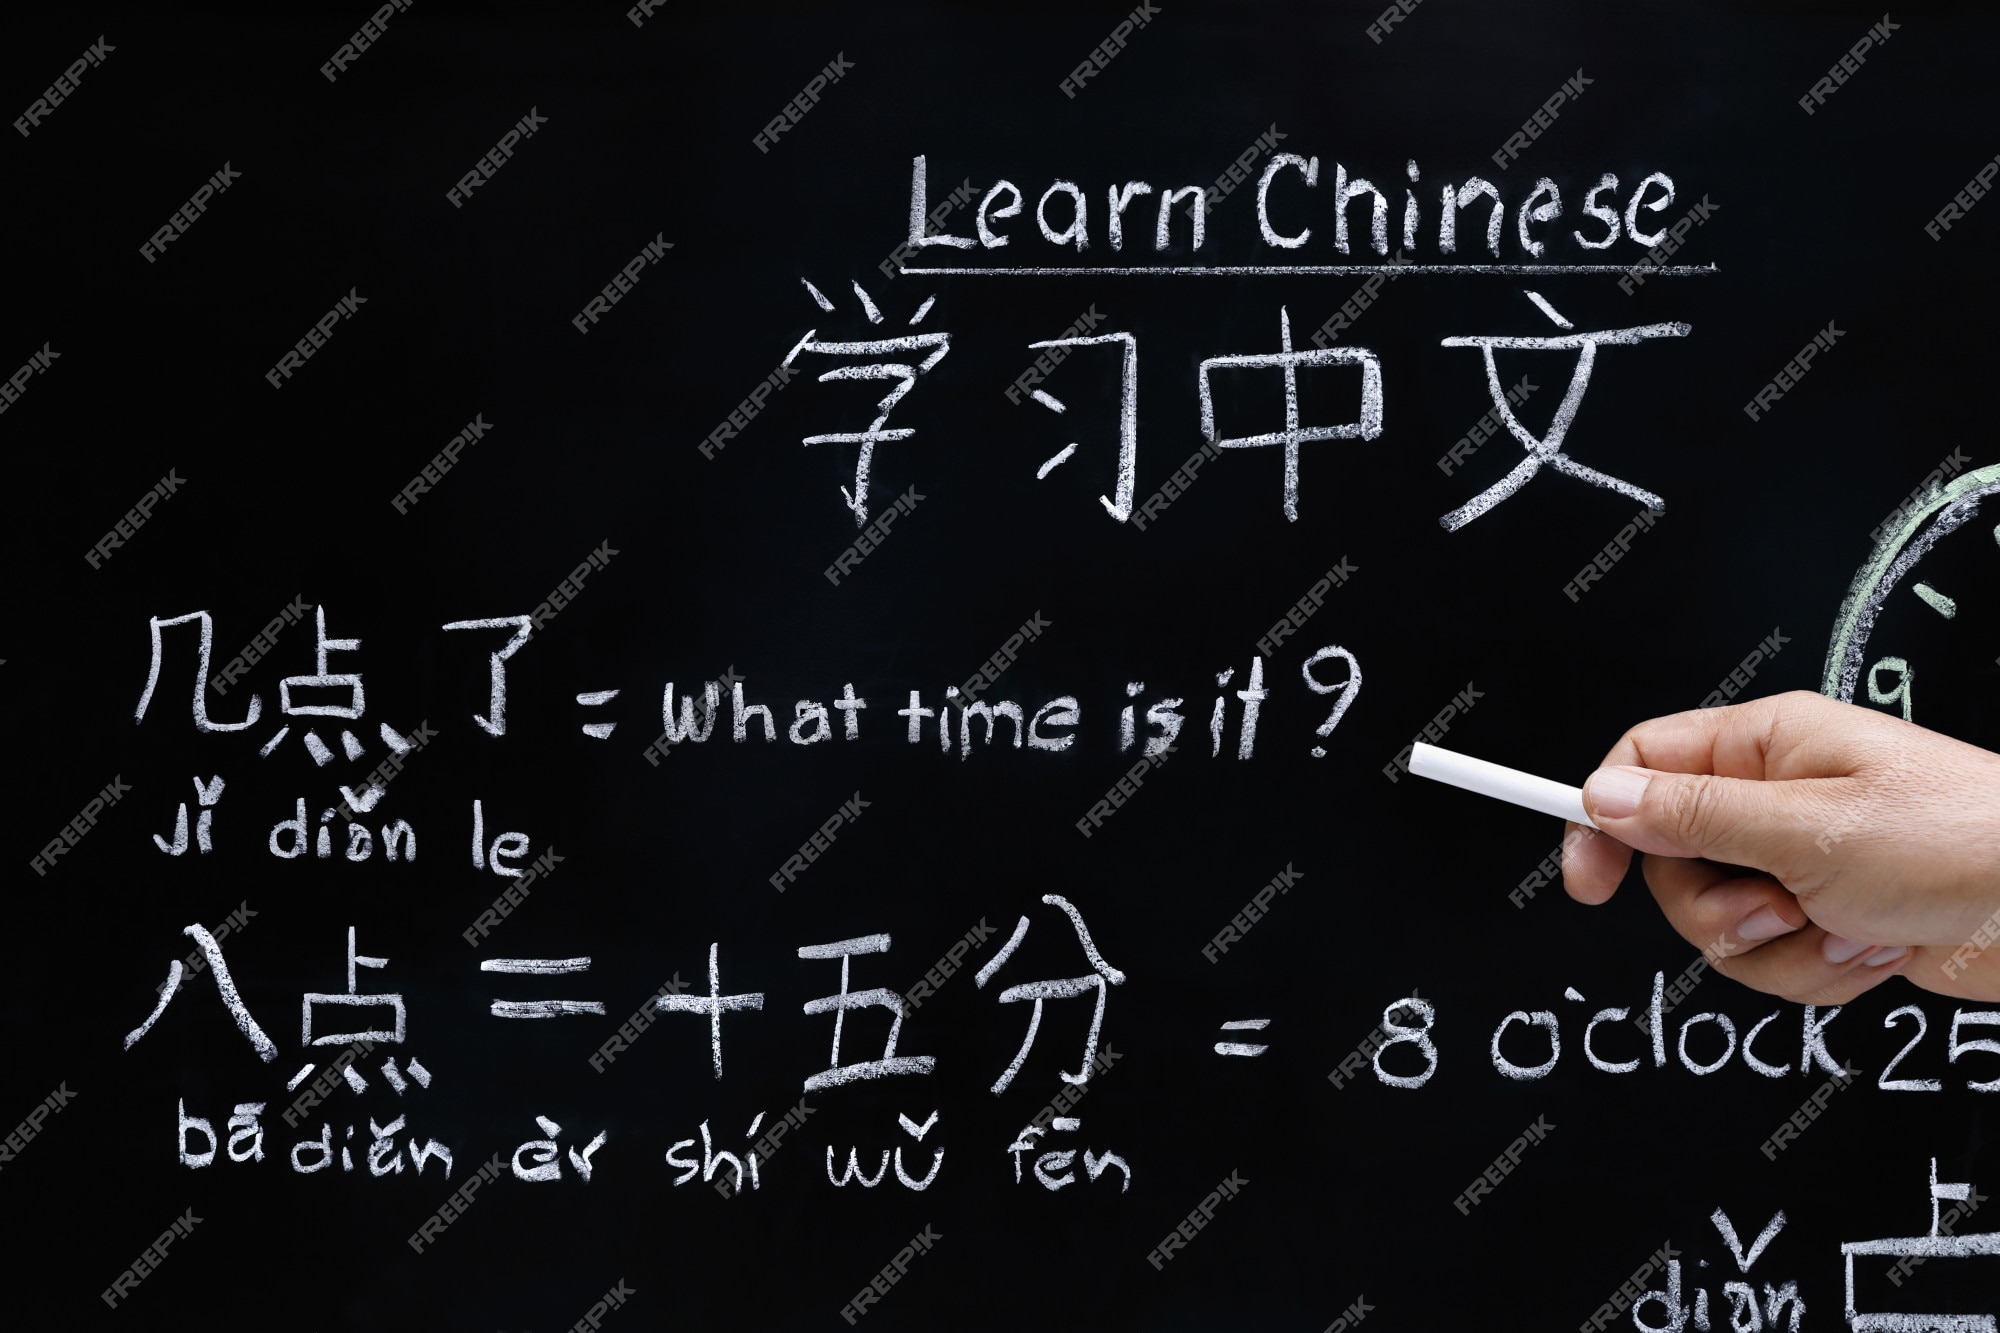 Learn Chinese
学习中文
几点了 = What time is it?
jǐ diǎn le
八点二十五分 = 8 o'clock 25
bā diǎn èr shí wǔ fēn
9
diǎn 点